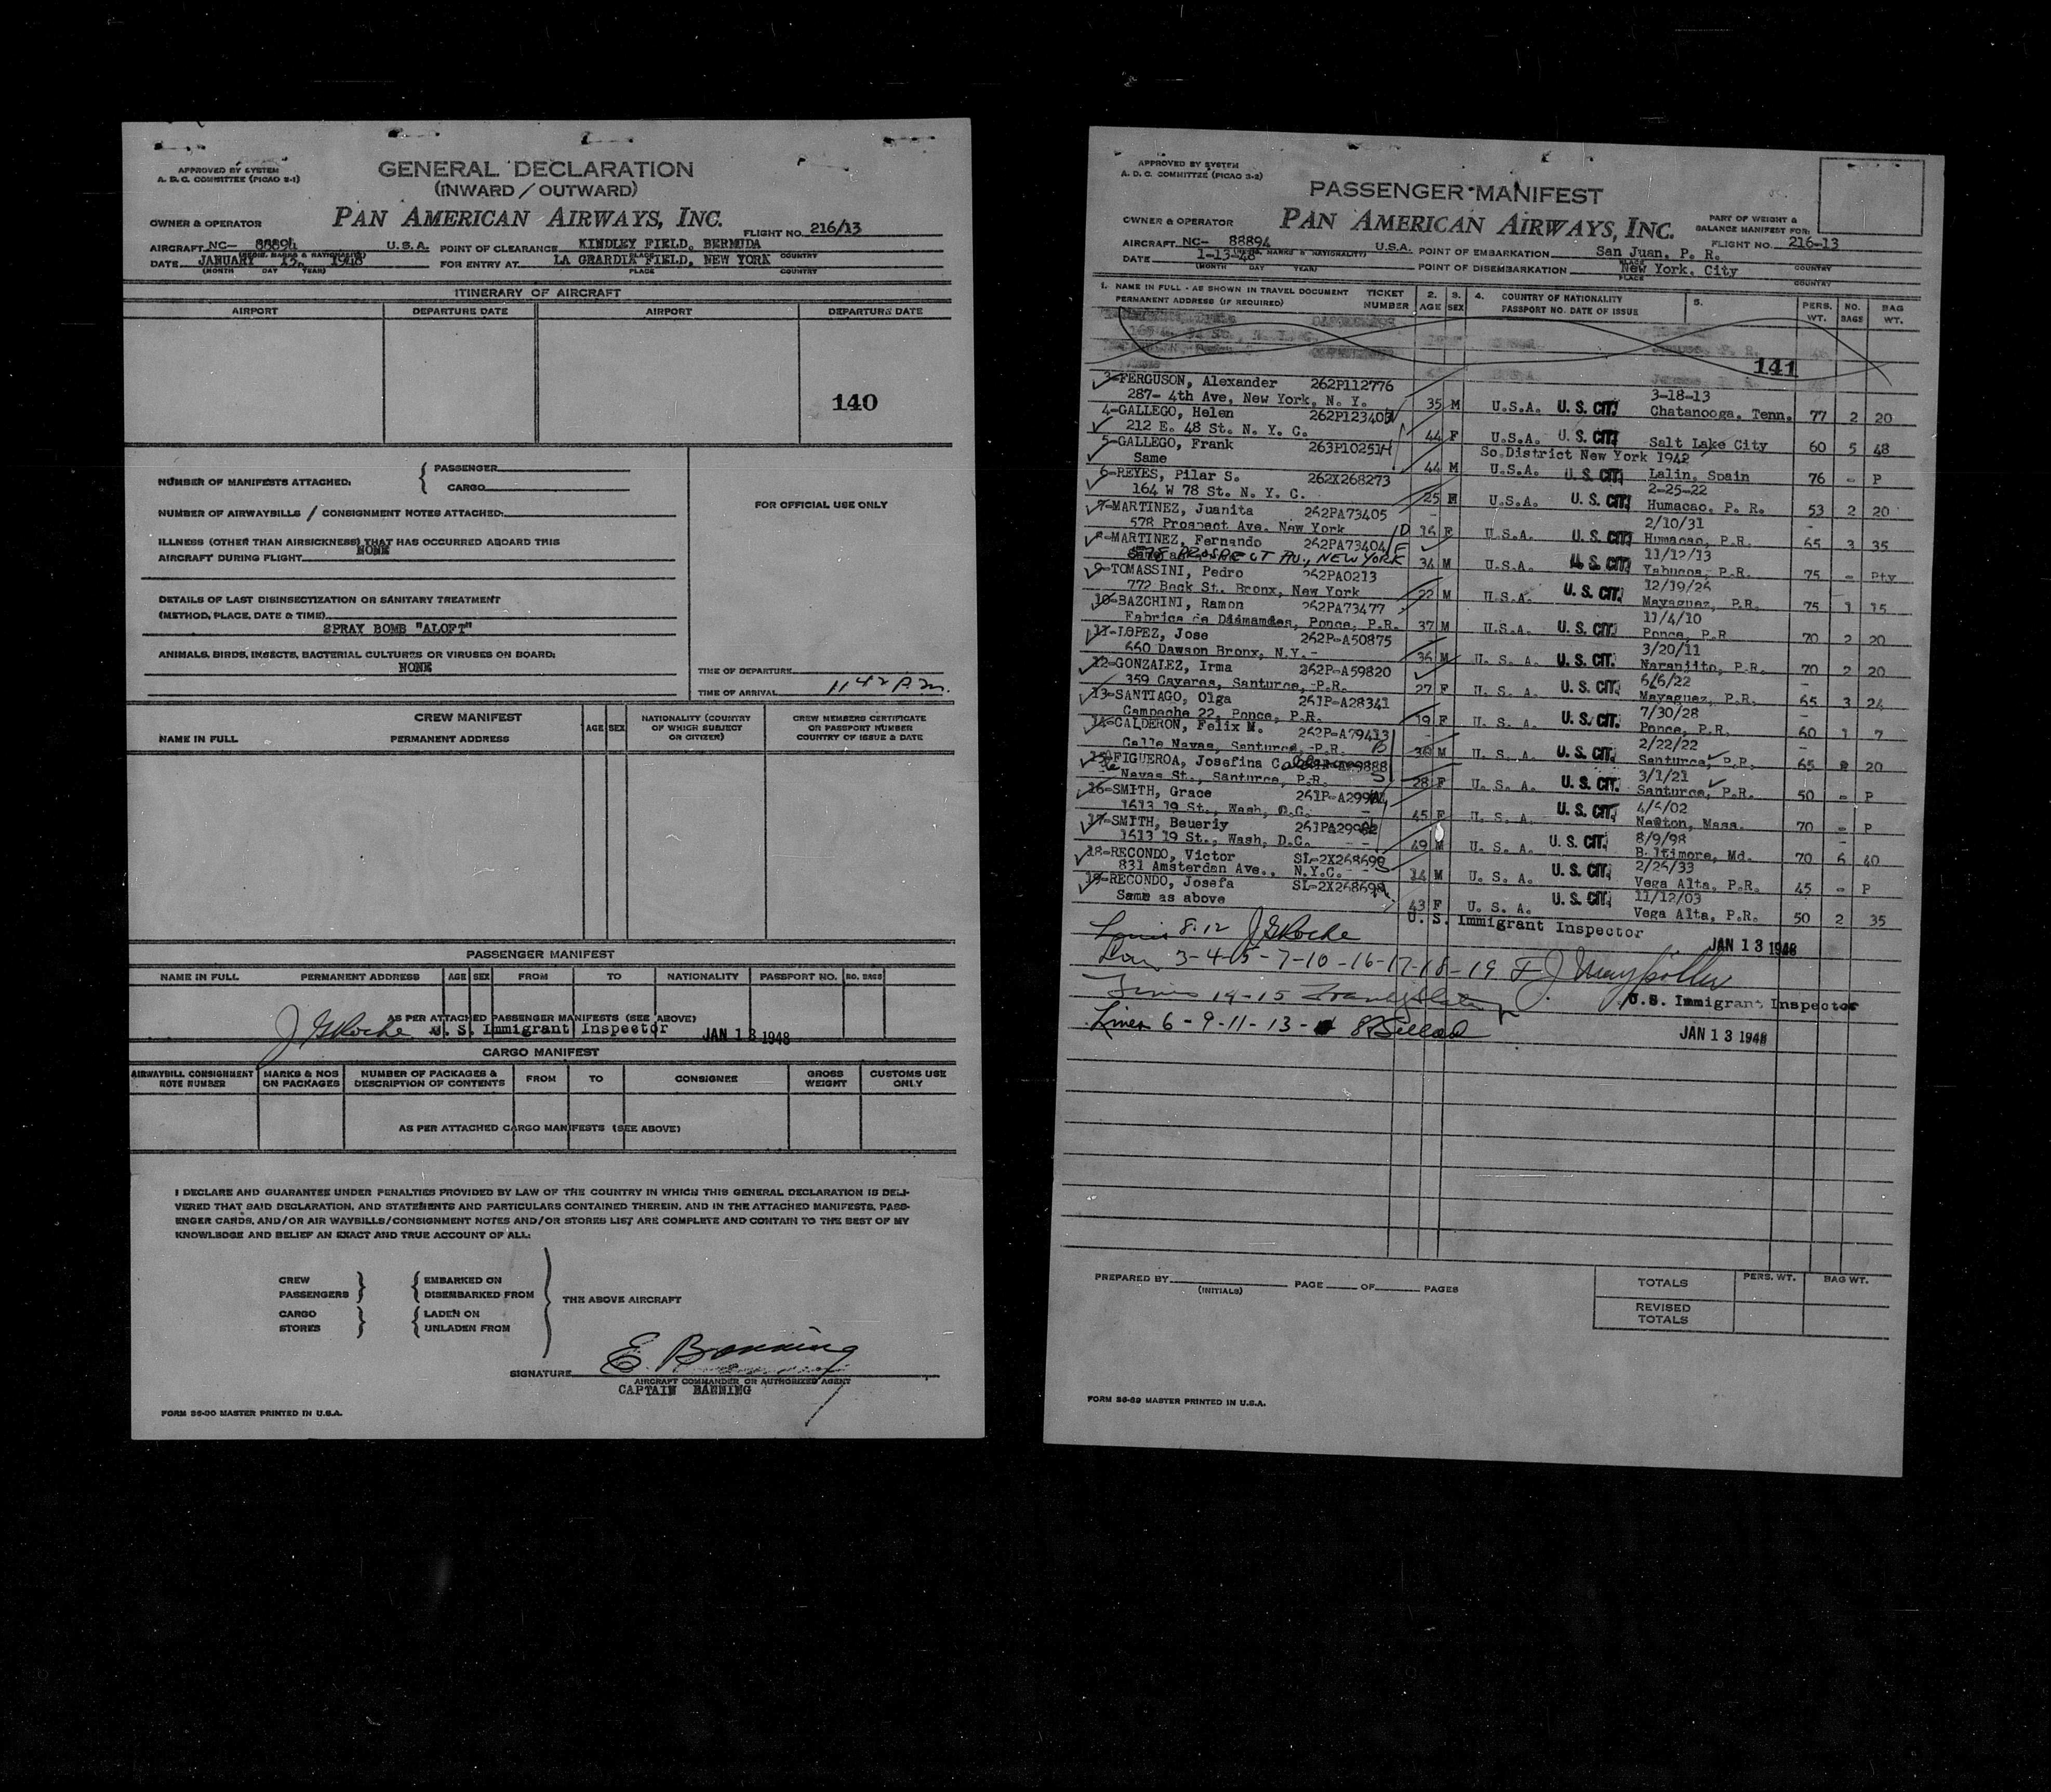 APPROVED BY SYSTEM
A. D. C. COMMITTEE (PICAO 2-1)
GENERAL DECLARATION
(INWARD / OUTWARD)
OWNER & OPERATOR PAN AMERICAN AIRWAYS, INC. FLIGHT NO. 216/13
AIRCRAFT NC- 88894 U.S.A. POINT OF CLEARANCE KINDLEY FIELD, BERMUDA
DATE JANUARY 13, 1948 FOR ENTRY AT LA GRARDIA FIELD, NEW YORK
(MONTH DAY YEAR) PLACE COUNTRY
ITINERARY OF AIRCRAFT
AIRPORT DEPARTURE DATE AIRPORT DEPARTURE DATE
140
NUMBER OF MANIFESTS ATTACHED: { PASSENGER
CARGO
NUMBER OF AIRWAYBILLS / CONSIGNMENT NOTES ATTACHED:
FOR OFFICIAL USE ONLY
ILLNESS (OTHER THAN AIRSICKNESS) THAT HAS OCCURRED ABOARD THIS
AIRCRAFT DURING FLIGHT NONE
DETAILS OF LAST DISINSECTIZATION OR SANITARY TREATMENT
(METHOD, PLACE, DATE & TIME)
SPRAY BOMB "ALOFT"
ANIMALS, BIRDS, INSECTS, BACTERIAL CULTURES OR VIRUSES ON BOARD:
NONE
TIME OF DEPARTURE
TIME OF ARRIVAL 1142 P.m.
CREW MANIFEST
NAME IN FULL PERMANENT ADDRESS AGE SEX NATIONALITY (COUNTRY OF WHICH SUBJECT OR CITIZEN) CREW MEMBERS CERTIFICATE OR PASSPORT NUMBER COUNTRY OF ISSUE & DATE
PASSENGER MANIFEST
NAME IN FULL PERMANENT ADDRESS AGE SEX FROM TO NATIONALITY PASSPORT NO. NO. BAGS
AS PER ATTACHED PASSENGER MANIFESTS (SEE ABOVE)
J G Roche U. S. Immigrant Inspector JAN 13 1948
CARGO MANIFEST
AIRWAYBILL CONSIGNMENT NOTE NUMBER MARKS & NOS ON PACKAGES NUMBER OF PACKAGES & DESCRIPTION OF CONTENTS FROM TO CONSIGNEE GROSS WEIGHT CUSTOMS USE ONLY
AS PER ATTACHED CARGO MANIFESTS (SEE ABOVE)
I DECLARE AND GUARANTEE UNDER PENALTIES PROVIDED BY LAW OF THE COUNTRY IN WHICH THIS GENERAL DECLARATION IS DELI-
VERED THAT SAID DECLARATION, AND STATEMENTS AND PARTICULARS CONTAINED THEREIN, AND IN THE ATTACHED MANIFESTS, PASS-
ENGER CARDS, AND/OR AIR WAYBILLS/CONSIGNMENT NOTES AND/OR STORES LIST ARE COMPLETE AND CONTAIN TO THE BEST OF MY
KNOWLEDGE AND BELIEF AN EXACT AND TRUE ACCOUNT OF ALL:
CREW
PASSENGERS } { EMBARKED ON
DISEMBARKED FROM
THE ABOVE AIRCRAFT
CARGO
STORES } { LADEN ON
UNLADEN FROM
SIGNATURE E. Banning
AIRCRAFT COMMANDER OR AUTHORIZED AGENT
CAPTAIN BANNING
FORM 36-30 MASTER PRINTED IN U.S.A.
APPROVED BY SYSTEM
A. D. C. COMMITTEE (PICAO 3-2)
PASSENGER MANIFEST
OWNER & OPERATOR PAN AMERICAN AIRWAYS, INC. PART OF WEIGHT & BALANCE MANIFEST FOR:
AIRCRAFT NC- 88894 U.S.A. POINT OF EMBARKATION San Juan, P. R. FLIGHT NO. 216-13
DATE 1-13-48 POINT OF DISEMBARKATION New York, City
(MONTH DAY YEAR) PLACE COUNTRY
1. NAME IN FULL - AS SHOWN IN TRAVEL DOCUMENT TICKET NUMBER 2. AGE 3. SEX 4. COUNTRY OF NATIONALITY 5. PERS. WT. NO. BAGS BAG WT.
PERMANENT ADDRESS (IF REQUIRED) PASSPORT NO. DATE OF ISSUE
141
3-FERGUSON, Alexander 262P112776 3-18-13
287- 4th Ave, New York, N. Y. 35 M U.S.A. U. S. CIT. Chatanooga, Tenn. 77 2 20
4-GALLEGO, Helen 262P12340
212 E. 48 St. N. Y. C. 44 F U.S.A. U. S. CIT. Salt Lake City 60 5 48
5-GALLEGO, Frank 263P10251 So.District New York 1942
Same 44 M U.S.A. U. S. CIT. Lalin, Spain 76 - P
6-REYES, Pilar S. 262X268273 2-25-22
164 W 78 St. N. Y. C. 25 F U.S.A. U. S. CIT. Humacao, P. R. 53 2 20
7-MARTINEZ, Juanita 262PA73405 2/10/31
578 Prospect Ave. New York 16 F U.S.A. U. S. CIT. Humacao, P.R. 65 3 35
8-MARTINEZ, Fernando 262PA73404 11/12/13
578 PROSPECT AV., NEW YORK 34 M U.S.A. U. S. CIT. Yabucoa, P.R. 75 - Pty
9-TOMASSINI, Pedro 262PA0213 12/19/26
772 Beck St. Bronx, New York 22 M U.S.A. U. S. CIT. Mayaguez, P.R. 75 1 15
10-BAZCHINI, Ramon 262PA73477 11/4/10
Fabrica de Diamandes, Ponce, P.R. 37 M U.S.A. U. S. CIT. Ponce, P.R 70 2 20
11-LOPEZ, Jose 262P-A50875 3/20/11
660 Dawson Bronx, N.Y. 36 M U. S. A. U. S. CIT. Naranjito, P.R. 70 2 20
12-GONZALEZ, Irma 262P-A59820 6/6/22
359 Cayeras, Santurce, P.R. 27 F U. S. A. U. S. CIT. Mayaguez, P.R. 65 3 24
13-SANTIAGO, Olga 261P-A28341 7/30/28
Campeche 22, Ponce, P.R. 19 F U. S. A. U. S. CIT. Ponce, P.R. 60 1 7
14-CALDERON, Felix M. 262P-A79413 2/22/22
Calle Navas, Santurce, P.R. 36 M U. S. A. U. S. CIT. Santurce, P.R. 65 2 20
15-FIGUEROA, Josefina C. 3/1/21
Navas St., Santurce, P.R. 28 F U. S. A. U. S. CIT. Santurce, P.R. 50 - P
16-SMITH, Grace 261P-A299 4/6/02
1613 19 St., Wash, D.C. 45 F U. S. A. U. S. CIT. Newton, Mass. 70 - P
17-SMITH, Beueriy 261PA299 8/9/98
1613 19 St., Wash, D.C. 49 M U. S. A. U. S. CIT. B. ltimore, Md. 70 6 40
18-RECONDO, Victor SL-2X26869 2/26/33
831 Amsterdan Ave., N.Y.C. 14 M U. S. A. U. S. CIT. Vega Alta, P.R. 45 - P
19-RECONDO, Josefa SL-2X26869 11/12/03
Same as above 43 F U. S. A. U. S. CIT. Vega Alta, P.R. 50 2 35
8-12 J G Roche U. S. Immigrant Inspector JAN 13 1948
3-4-5-7-10-16-17-18-19 F J
U.S. Immigrant Inspector
Lines 14-15
Lines 6-9-11-13- JAN 13 1948
PREPARED BY (INITIALS) PAGE OF PAGES
TOTALS PERS. WT. BAG WT.
REVISED TOTALS
FORM 36-39 MASTER PRINTED IN U.S.A.